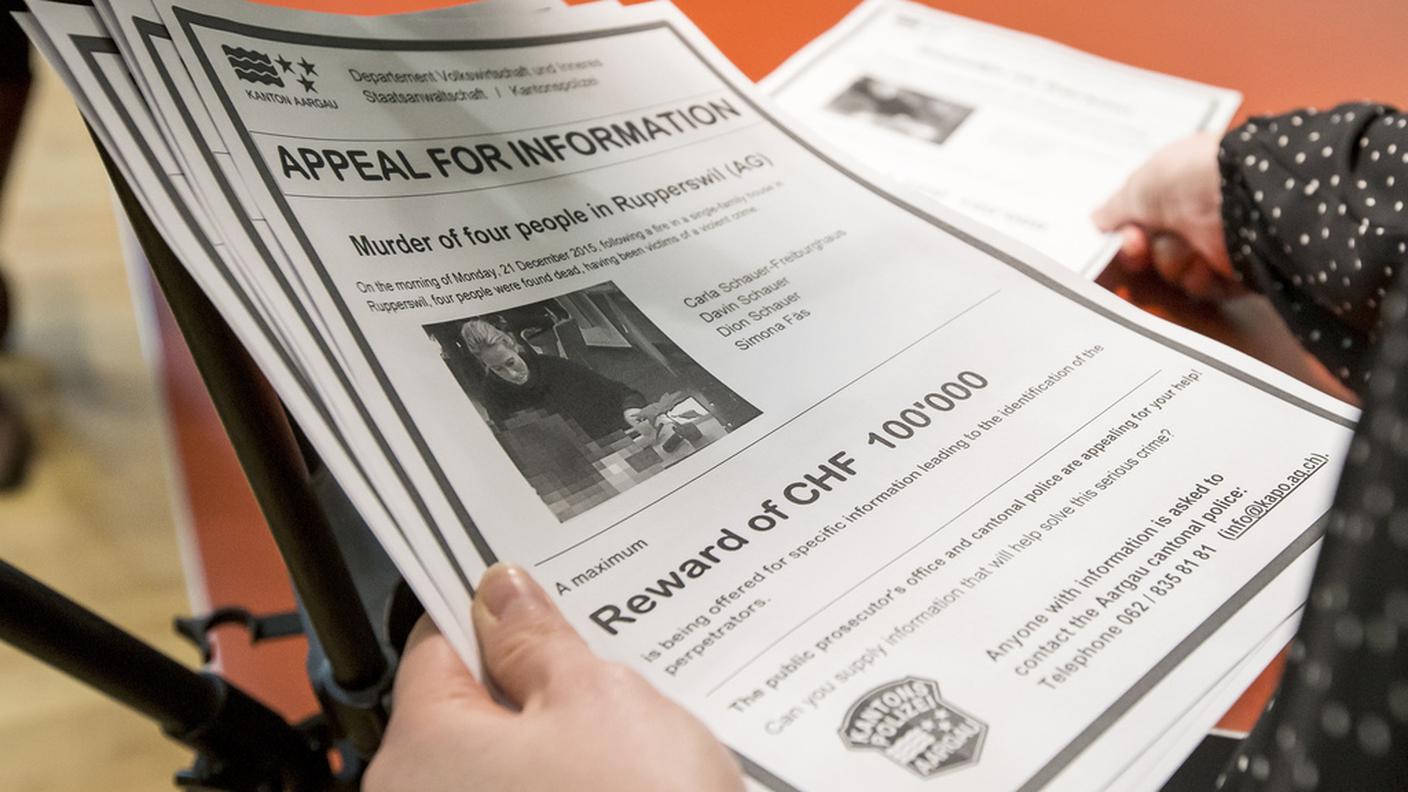 KANTON AARGAU
Departement Volkswirtschaft und Inneres
Staatsanwaltschaft / Kantonspolizei
APPEAL FOR INFORMATION
Murder of four people in Rupperswil (AG)
On the morning of Monday, 21 December 2015, following a fire in a single-family house in
Rupperswil, four people were found dead, having been victims of a violent crime.
Carla Schauer-Freiburghaus
Davin Schauer
Dion Schauer
Simona Fäs
A maximum
Reward of CHF 100'000
is being offered for specific information leading to the identification of the
perpetrators.
The public prosecutor's office and cantonal police are appealing for your help!
Can you supply information that will help solve this serious crime?
Anyone with information is asked to
contact the Aargau cantonal police:
Telephone 062 / 835 81 81 (info@kapo.ag.ch).
KANTONS
POLIZEI
AARGAU